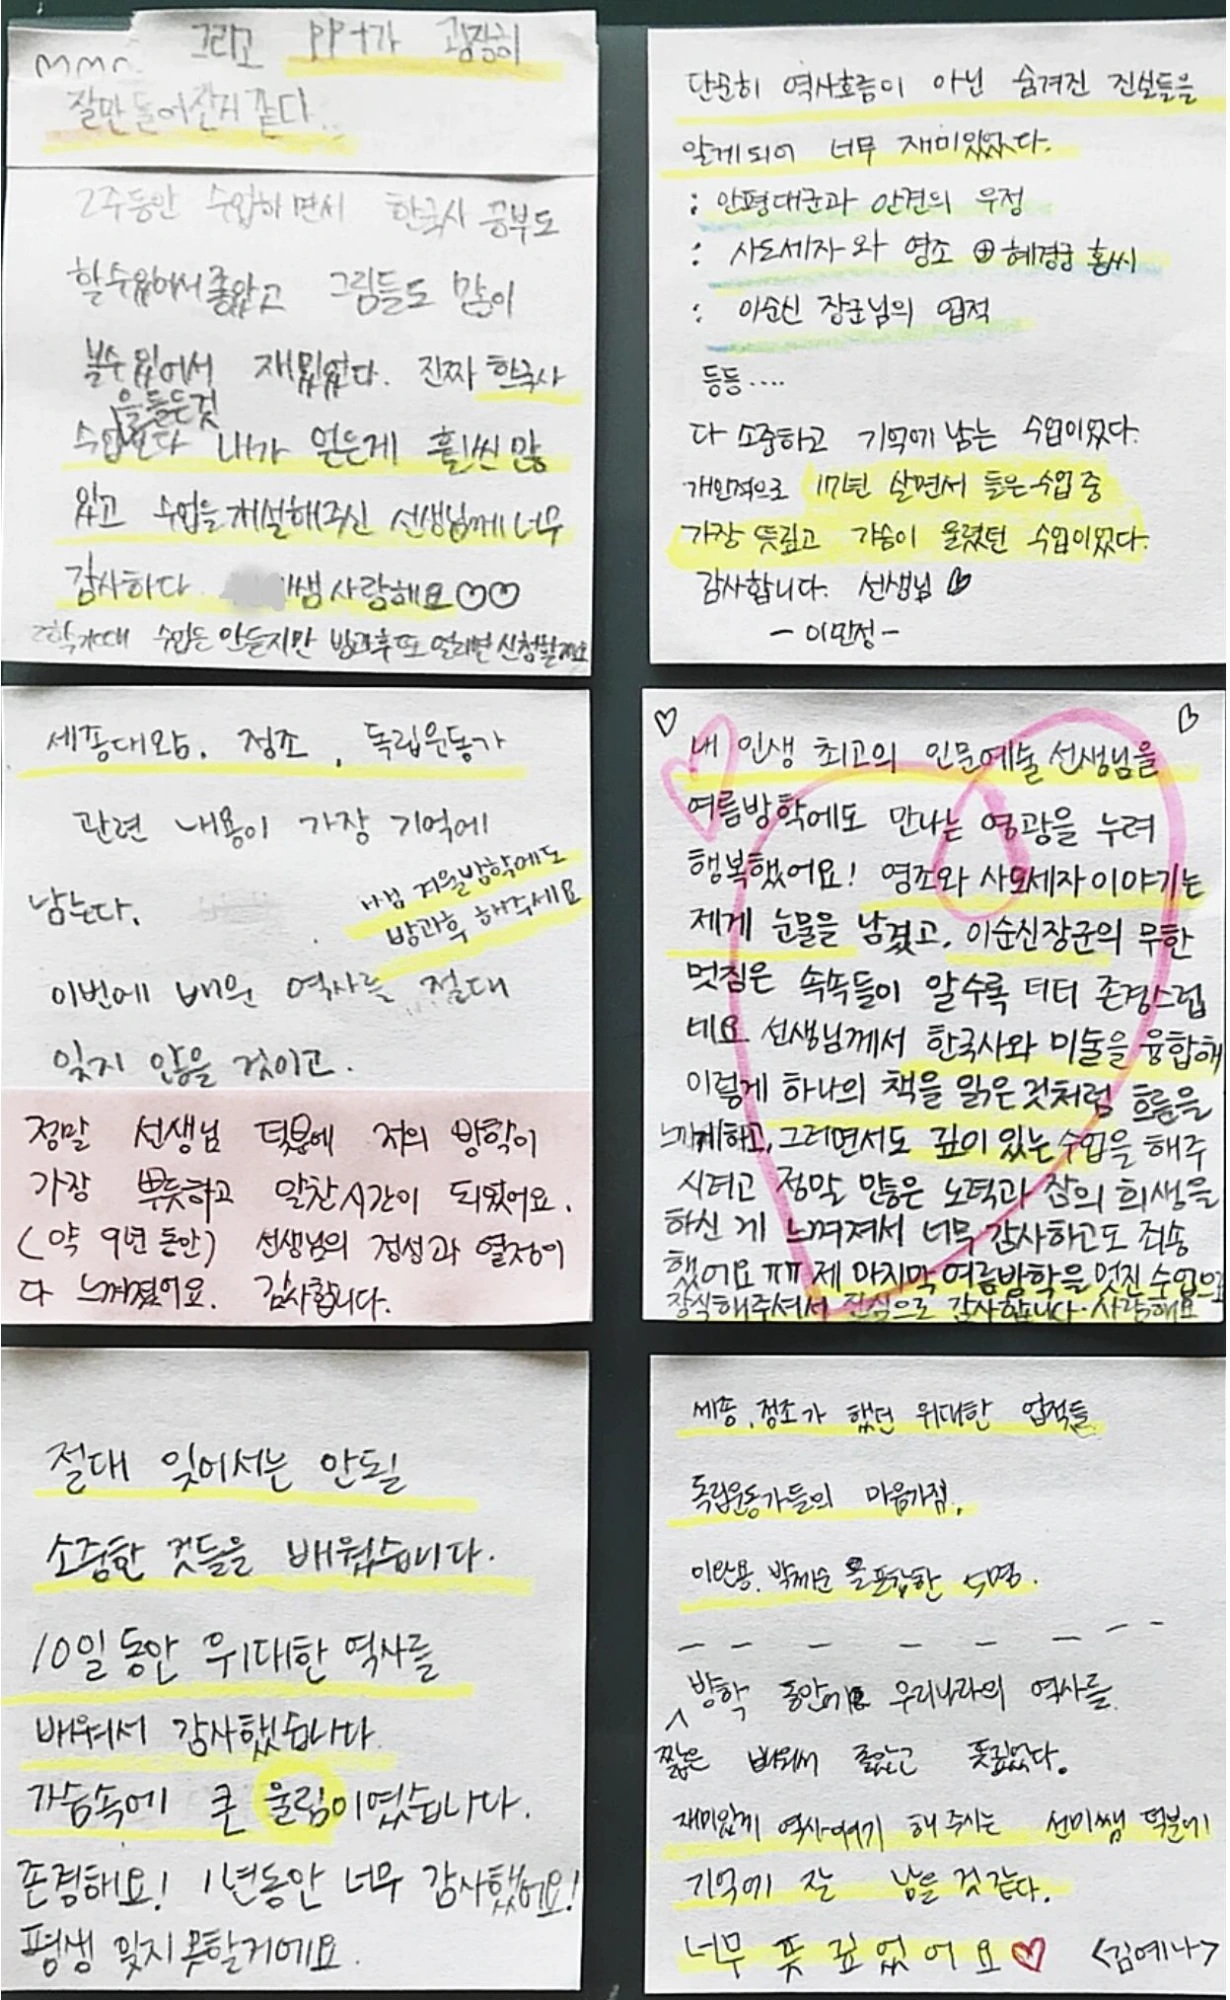 그리고 PPT가 굉장히
잘만들어진거 같다..
2주동안 수업하면서 한국사 공부도
할수있어서좋았고 그림들도 많이
볼수있어서 재밌었다. 진짜 한국사
을듣는것
수업보다 내가 얻은게 훨씬많
았고 수업을 개설해주신 선생님께 너무
감사하다 쌤사랑해요♡♡
2학기때 수업은 안듣지만 방과후또 열리면 신청할게요
단순히 역사흐름이 아닌 숨겨진 진실들을
알게되어 너무 재미있었다.
: 안평대군과 안견의 우정
: 사도세자와 영조 ⊕ 혜경궁 홍씨
: 이순신 장군님의 업적
등등....
다 소중하고 기억에 남는 수업이었다.
개인적으로 17년 살면서 들은수업 중
가장 뜻깊고 가슴이 울렸던 수업이었다.
감사합니다. 선생님 ♡
- 이민정 -
세종대왕, 정조, 독립운동가
관련 내용이 가장 기억에
남는다.
쌤 겨울방학에도
방과후 해주세요
이번에 배운 역사를 절대
잊지 않을 것이고.
정말 선생님 덕분에 저의 방학이
가장 뿌듯하고 알찬시간이 되었어요.
(약 9년 동안) 선생님의 정성과 열정이
다 느껴졌어요. 감사합니다.
내 인생 최고의 인문예술 선생님을
여름방학에도 만나는 영광을 누려
행복했어요! 영조와 사도세자 이야기는
제게 눈물을 남겼고, 이순신장군의 무한
멋짐은 속속들이 알수록 더더 존경스럽
네요 선생님께서 한국사와 미술을 융합해
이렇게 하나의 책을 읽은 것처럼 흐름을
느끼게하고, 그러면서도 깊이 있는 수업을 해주
시려고 정말 많은 노력과 잠의 희생을
하신 게 느껴져서 너무 감사하고도 죄송
했어요 ㅠㅠ 제 마지막 여름방학을 멋진 수업으로
장식해주셔서 진심으로 감사합니다. 사랑해요
절대 잊어서는 안될
소중한 것들을 배웠습니다.
10일동안 위대한 역사를
배워서 감사했습니다
가슴속에 큰 울림이였습니다.
존경해요! 1년동안 너무 감사했어요!
평생 잊지못할거에요.
세종, 정조가 했던 위대한 업적들
독립운동가들의 마음가짐,
이완용, 박제순 을 포함한 5명.
짧은 방학 동안에 우리나라의 역사를
배워서 좋았고 뜻깊었다.
재미있게 역사얘기 해 주시는 선미쌤 덕분에
기억에 잘 남을 것 같다.
너무 뜻 깊었어요♡ <김예나>